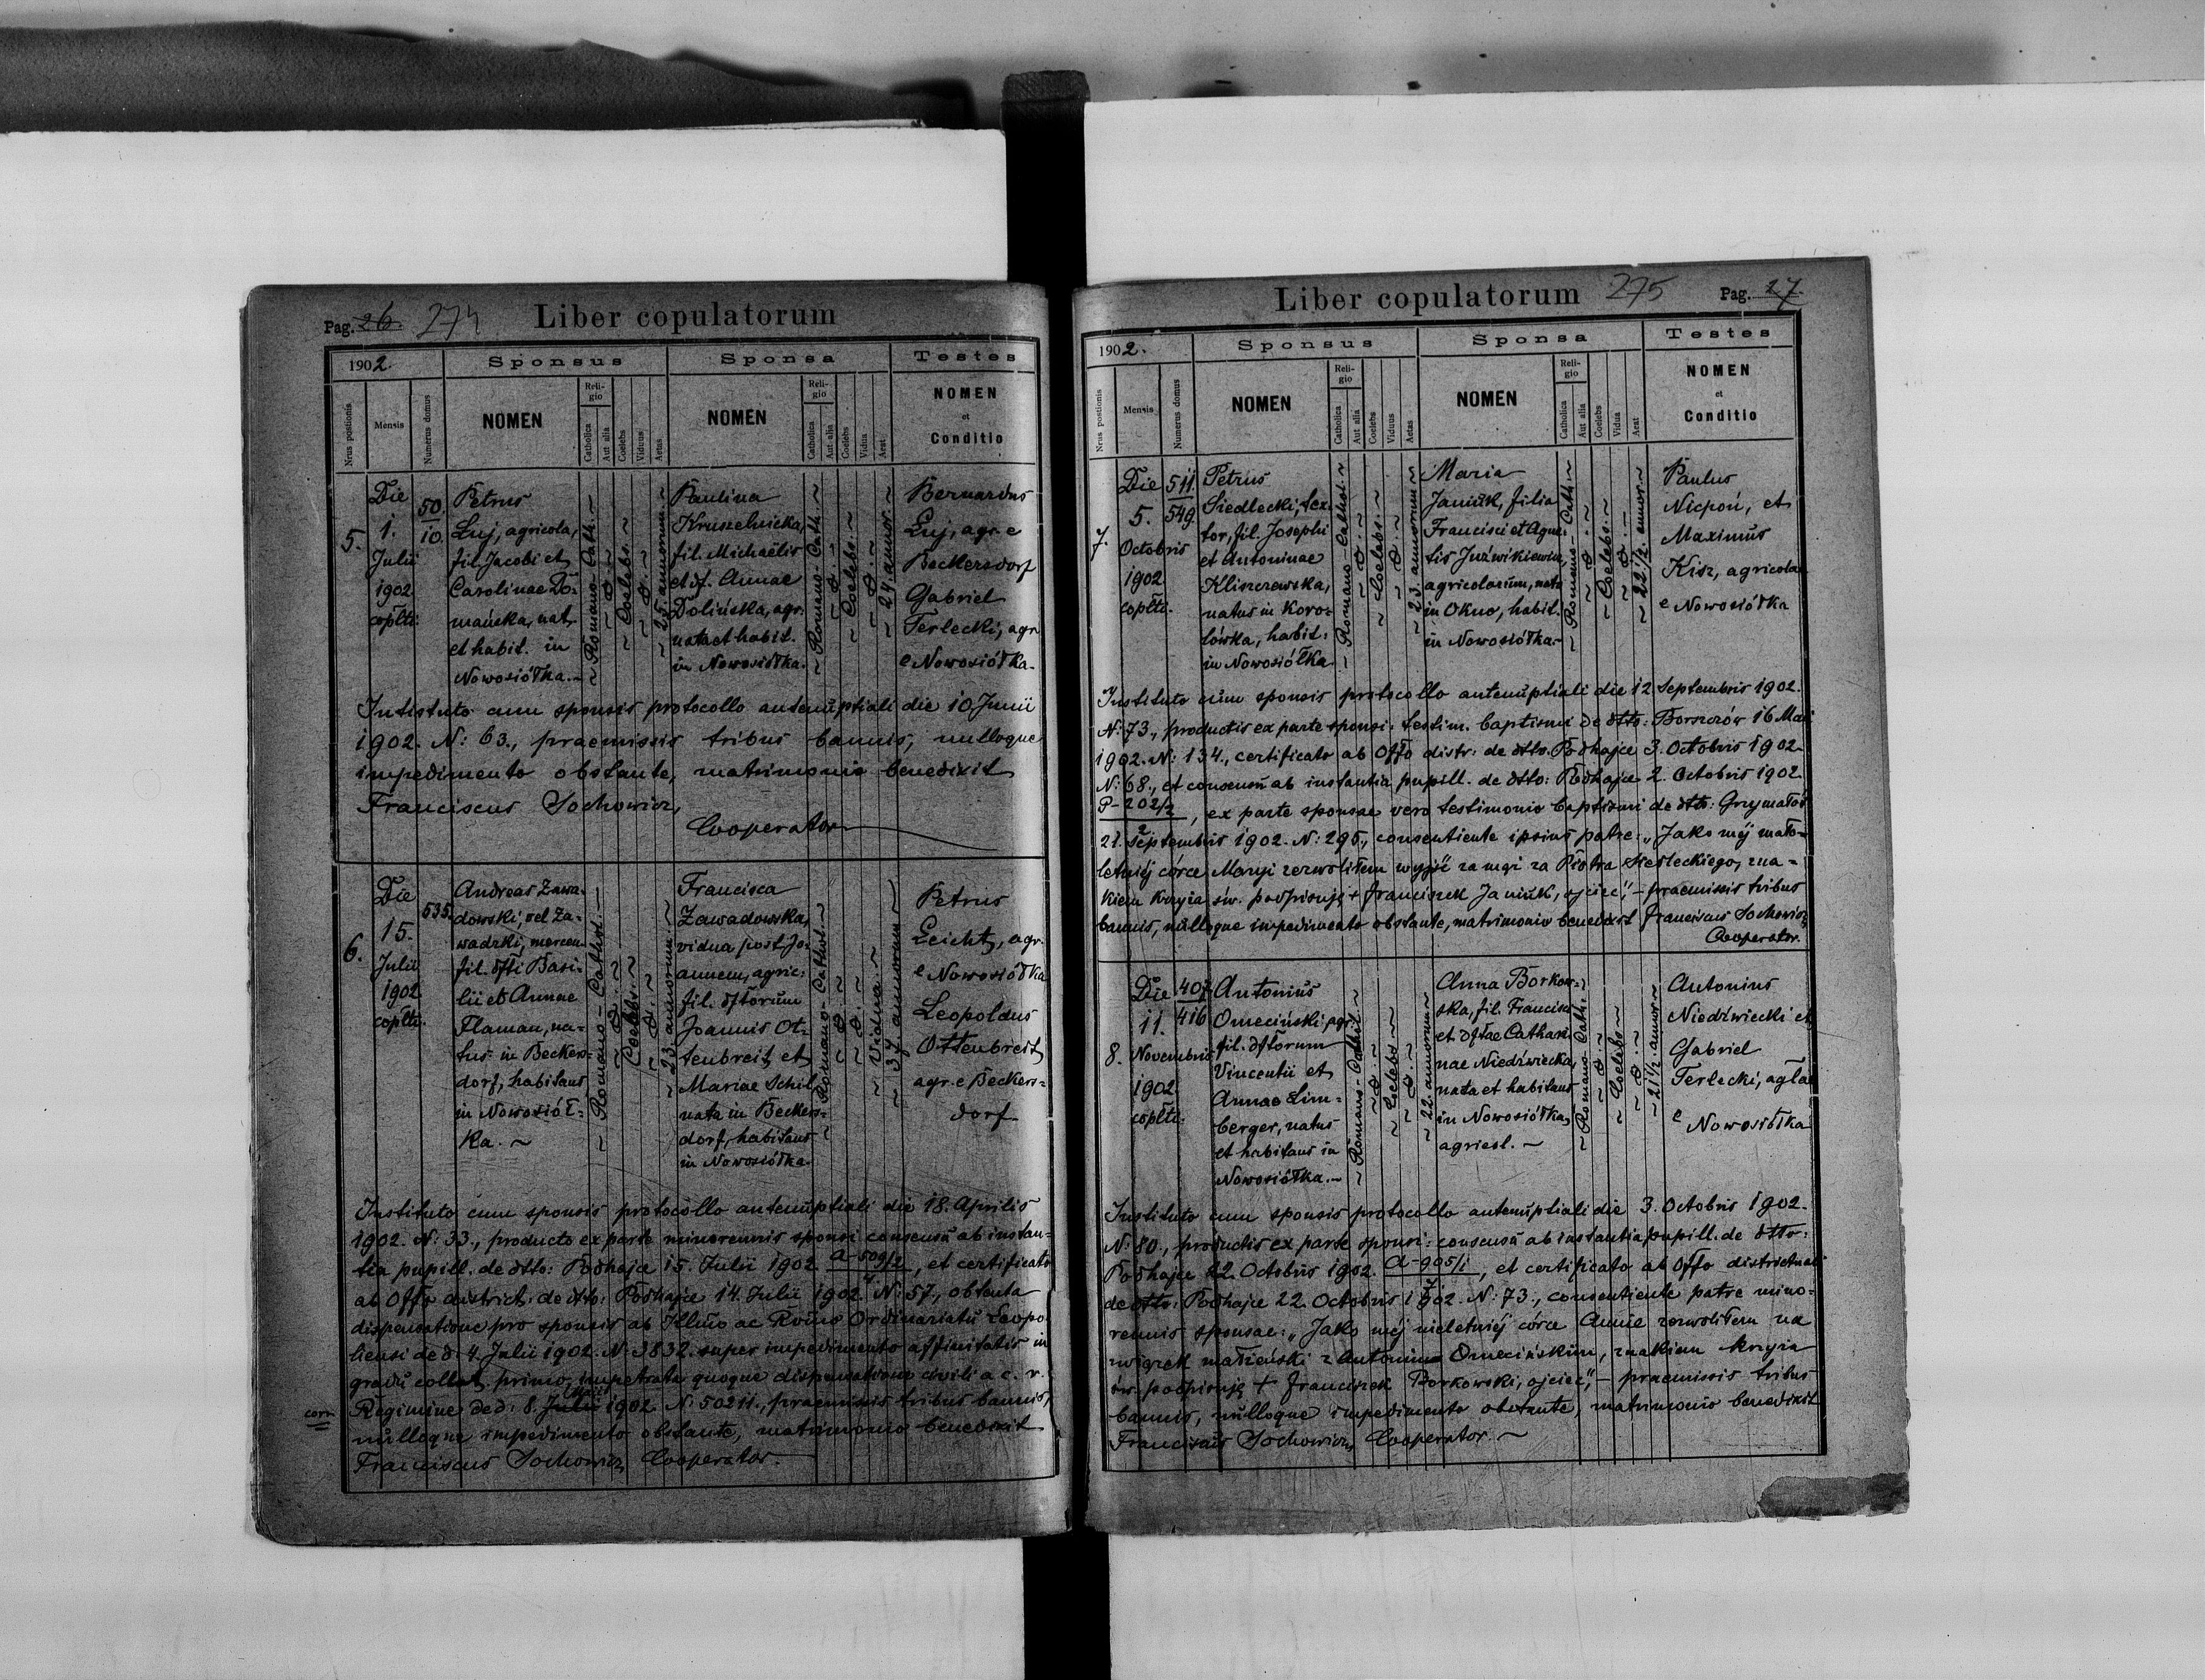 Pag. 26. 274 Liber copulatorum
1902.
Sponsus
Sponsa
Testes
Nrus postionis
Mensis
Numerus domus
NOMEN
Religio
Catholica
Aut alia
Coelebs
Viduus
Aetas
NOMEN
Religio
Catholica
Aut alia
Coelebs
Vidua
Aetat
NOMEN
et
Conditio
5.
Die
1.
Julii
1902
coplti.
50.
10.
Petrus
Luj, agricola,
fil. Jacobi et
Carolinae Do=
mańska, nat.
et habit. in
Nowosiółka.—
~ Romano-Cath. ~
~ Coelebs. ~
~ 25 annorum. ~
Paulina
Kruszelnicka,
fil. Michaëlis
et df. Annae
Dolińska, agr.
nata et habit.
in Nowosiółka.
~ Romano-Cath. ~
~ Coelebs. ~
~ 24 annor. ~
Bernardus
Luj, agr. e
Beckersdorf
Gabriel
Terlecki, agr
e Nowosiółka.
Instituto cum sponsis protocollo antenuptiali die 10 Junii
1902. N: 63., praemissis tribus bannis, nulloque
impedimento obstante, matrimonio benedixit
Franciscus Sochowicz,
Cooperator
6.
Die
15.
Julii
1902
coplti.
535.
Andreas Zawa-
dowski, vel Za-
wadzki, mercen.
fil. dfti Basi-
lii et Annae
Flaman, na-
tus in Beckers-
dorf, habitans
in Nowosiół=
ka. ~
~ Romano-Cathol. ~
Coelebs. ~
~ 23 annorum. ~
Francisca
Zawadowska,
vidua post Jo-
annem, agric.
fil. dftorum
Joannis Ot-
tenbreit, et
Mariae Schil
nata in Beckers-
dorf, habitans
in Nowosiółka.
Romano-Cathol. ~
~ Vidua. ~
~ 37 annorum ~
Petrus
Leicht, agr.
e Nowosiółka
Leopoldus
Ottenbreit,
agr. e Beckers=
dorf
Instituto cum sponsis protocollo antenuptiali die 18. Aprilis
1902. N: 33., producto ex parte minorennis sponsi consensu ab instan-
tia pupill. de dtto: Podhajce 15. Julii 1902 A-509/2 4, et certificato
ab Offo district. de dtto: Podhajce 14. Julii 1902. N: 57., obtenta
dispensatione pro sponsis ab Illmo ac Rvmo Ordinariatu Leopo-
liensi de d. 4. Julii 1902. N. 3832. super impedimento affinitatis in
gradu collat. primo, impetrata quoque dispensatione civili a c. r.
corr. Regimine de d: 8. Julii 1902. N: 50211., praemissis tribus bannis,
nulloque impedimento obstante, matrimonio benedixit
Franciscus Sochowicz Cooperator.—
Liber copulatorum 275 Pag. 27.
1902.
Sponsus
Sponsa
Testes
Nrus postionis
Mensis
Numerus domus
NOMEN
Religio
Catholica
Aut alia
Coelebs
Viduus
Aetas
NOMEN
Religio
Catholica
Aut alia
Coelebs
Vidua
Aetat
NOMEN
et
Conditio
7.
Die
5.
Octobris
1902
coplti.
511.
549.
Petrus
Siedlecki, tex-
tor, fil. Josephi
et Antoninae
Kliszczewska,
natus in Koro=
lówka, habit:
in Nowosiółka
~ Romano-Cathol. ~
~ Coelebs. ~
~ 23. annorum ~
Maria
Janiuk, filia
Francisci et Agne-
tis
agricolarum, nata
in Okno, habit.
in Nowosiółka.
~ Romano-Cath ~
~ Coelebs. ~
~ 22 1/2 annor. ~
Paulus
Niepoń, et
Maximus
Kisz, agricolae
e Nowosiółka
Instituto cum sponsis protocollo antenuptiali die 12 Septembris 1902.
N: 73., productis ex parte sponsi: testim. baptismi de dtto: Borszczów 16 Maii
1902. N: 134., certificato ab Offo distr: de dtto. Podhajce 3. Octobris 1902.
N: 68., et consensu ab instantia pupill. de dtto: Podhajce 2. Octobris 1902.
P-202/2 2, ex parte sponsae vero testimonio baptismi de dtto: Grzymałów
21. Septembris 1902. N: 295., consentiente ipsius patre: „Jako mej mało-
letniéj córce Maryi zezwoliłem wyjść za mąż za Piotra Siedleckiego, zna-
kiem krzyża św. podpisuję + Franciszek Janiuk, ojciec", – praemissis tribus
bannis, nulloque impedimento obstante, matrimonio benedixit Franciscus Sochowicz
Cooperator.
8.
Die
11.
Novembris
1902
coplti.
407
416
Antonius
Omeciński, agr.
fil. dftorum
Vincentii et
Annae Lim=
berger, natus
et habitans in
Nowosiółka.—
~ Romano-Cathol ~
~ Coelebs ~
~ 22. annorum ~
Anna Borkow-
ska, fil. Francisci
et dftae Cathari-
nae Niedźwiecka,
nata et habitans
in Nowosiółka,
agricol. ~
~ Romano-Cath. ~
~ Coelebs ~
~ 21 1/2. annor ~
Antonius
Niedźwiecki et
Gabriel
Terlecki, aglae
e Nowosiółka
Instituto cum sponsis protocollo antenuptiali die 3. Octobris 1902.
N: 80., productis ex parte sponsi: consensu ab instantia pupill. de dtto:
Podhajce 22 Octobris 1902. A-905/1 7, et certificato ab Offo districtuali
de dtto: Podhajce 22. Octobris 1902. N: 73., consentiente patre mino-
rennis sponsae: „Jako mej nieletniéj córce Annie zezwoliłem na
związek małżeński z Antonim Omecińskim, znakiem krzyża
św. podpisuję + Franciszek Borkowski, ojciec", – praemissis tribus
bannis, nulloque impedimento obstante, matrimonio benedixit
Franciscus Sochowicz, Cooperator. ~